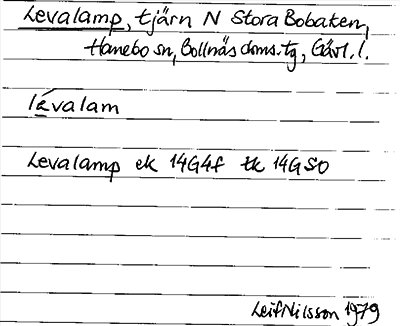 Levalamp, tjärn N Stora Bobaken,
Hanebo sn, Bollnäs doms.tg, Gävl. l.
lévalam
Levalamp ek 14G4f tk 14GSO
Leif Nilsson 1979